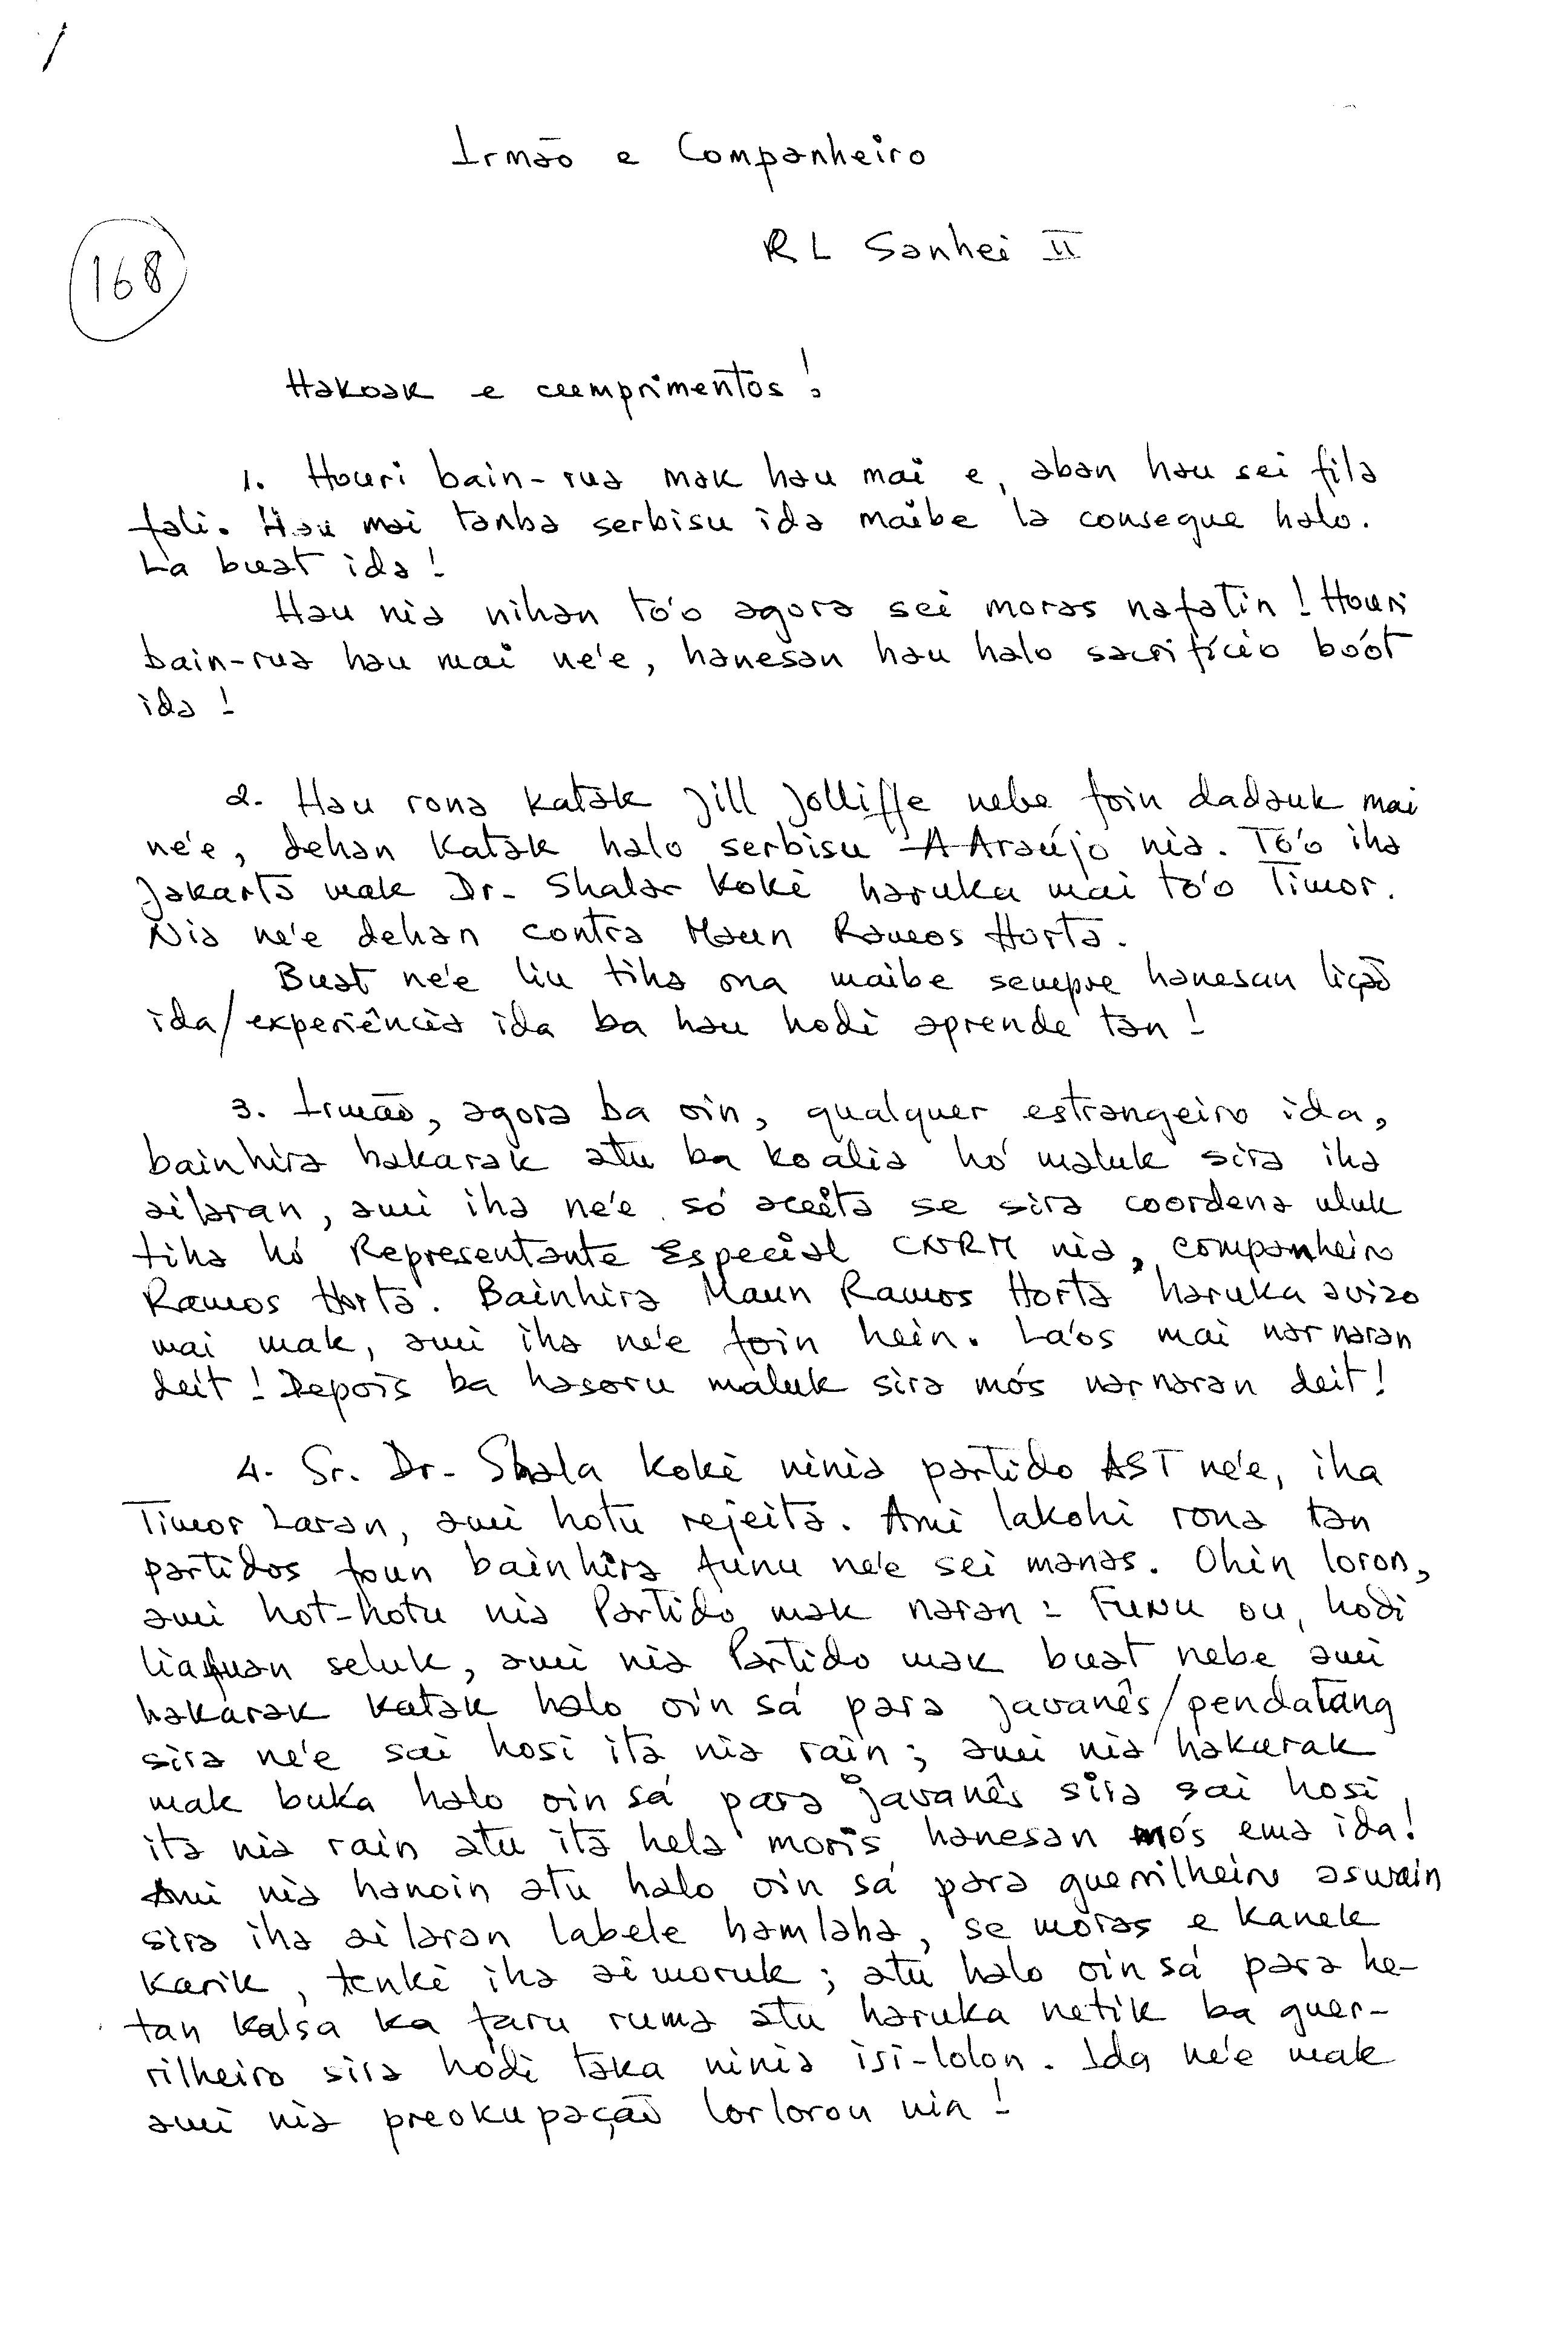 Irmão e Companheiro
RL Sanhei II
168
Hakoak e cumprimentos!
1. Houri bain-rua mak hau mai e, aban hau sei fila
fali. Hau mai tanba serbisu ida maibe la consegue halo.
La buat ida!
Hau nia nihan to'o agora sei moras nafatin! Houri
bain-rua hau mai ne'e, hanesan hau halo sacrifício boót
ida!
2. Hau rona katak Jill Jolliffe nebe foin dadauk mai
ne'e, dehan katak halo serbisu A Araújo nia. To'o iha
Jakarta mak Dr. Shalar Koké haruka mai to'o Timor.
Nia ne'e dehan contra Maun Ramos Horta.
Buat ne'e liu tiha ona maibe sempre hanesan lição
ida/experiência ida ba hau hodi aprende tan!
3. Irmão, agora ba oin, qualquer estrangeiro ida,
bainhira hakarak atu ba koalia hó maluk sira iha
ailaran, ami iha ne'e só aceita se sira coordena uluk
tiha hó Representante Especial CNRM nia, companheiro
Ramos Horta. Bainhira Maun Ramos Horta haruka avizo
mai mak, ami iha ne'e foin hein. La'os mai narnaran
deit! Depois ba hasoru maluk sira mós narnaran deit!
4. Sr. Dr. Shala Koké ninia partido AST ne'e, iha
Timor Laran, ami hotu rejeita. Ami lakohi rona tan
partidos foun bainhira funu ne'e sei manas. Ohin loron,
ami hot-hotu nia Partido mak naran: FUNU ou, hodi
liafuan seluk, ami nia Partido mak buat nebe ami
hakarak katak halo oin sá para javanês/pendatang
sira ne'e sai hosi ita nia rain; ami nia hakarak
mak buka halo oin sá para javanês sira sai hosi
ita nia rain atu ita hela moris hanesan mós ema ida!
Ami nia hanoin atu halo oin sá para guerrilheiro aswain
sira iha ailaran labele hamlaha, se moras e kanek
karik, tenké iha aimoruk; atu halo oin sá para he-
tan kalsa ka faru ruma atu haruka netik ba guer-
rilheiro sira hodi taka ninia isi-lolon. Ida ne'e mak
ami nia preokupação lorloron nia!